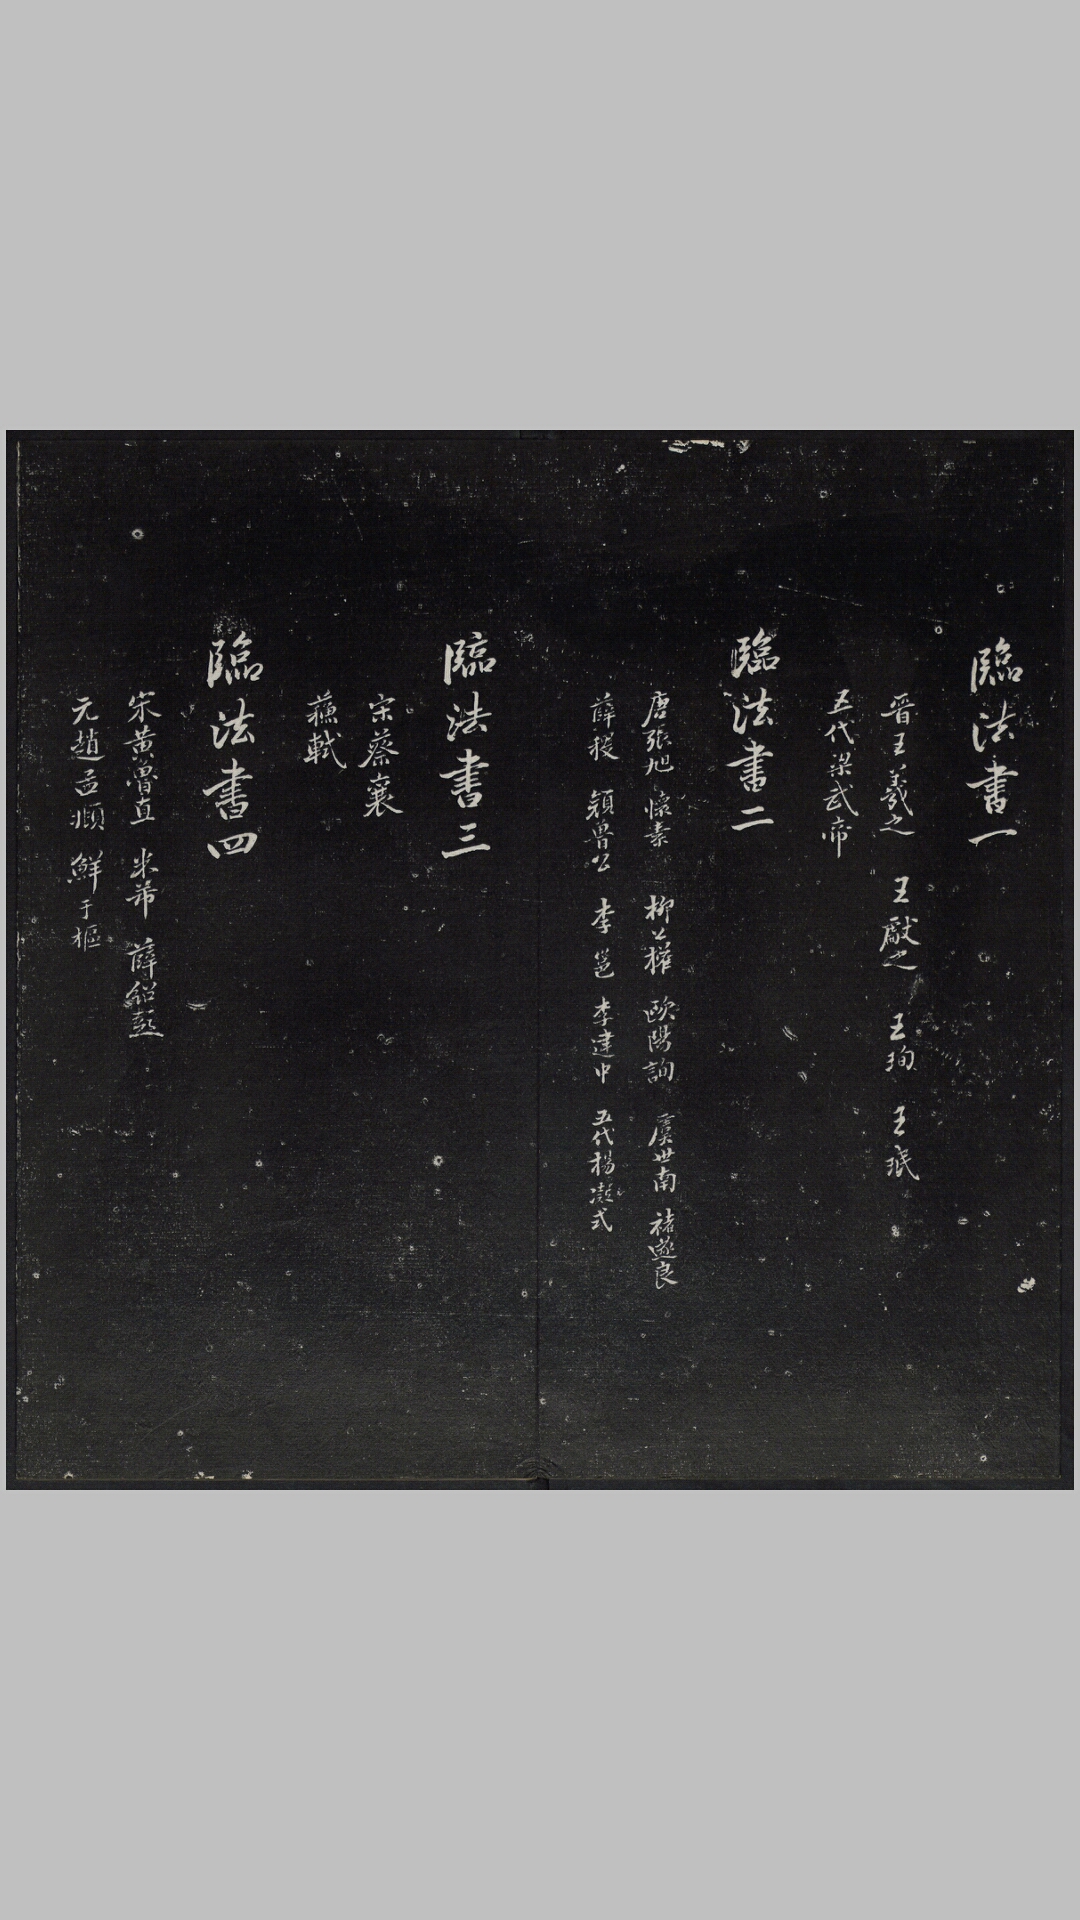 臨法書一
晉王羲之 王獻之 王珣 王珉
五代梁武帝
臨法書二
唐張旭 懷素 柳公權 歐陽詢 虞世南 褚遂良
薛稷 顏魯公 李邕 李建中 五代楊凝式
臨法書三
宋蔡襄
蘇軾
臨法書四
宋黃魯直 米芾 薛紹彭
元趙孟頫 鮮于樞